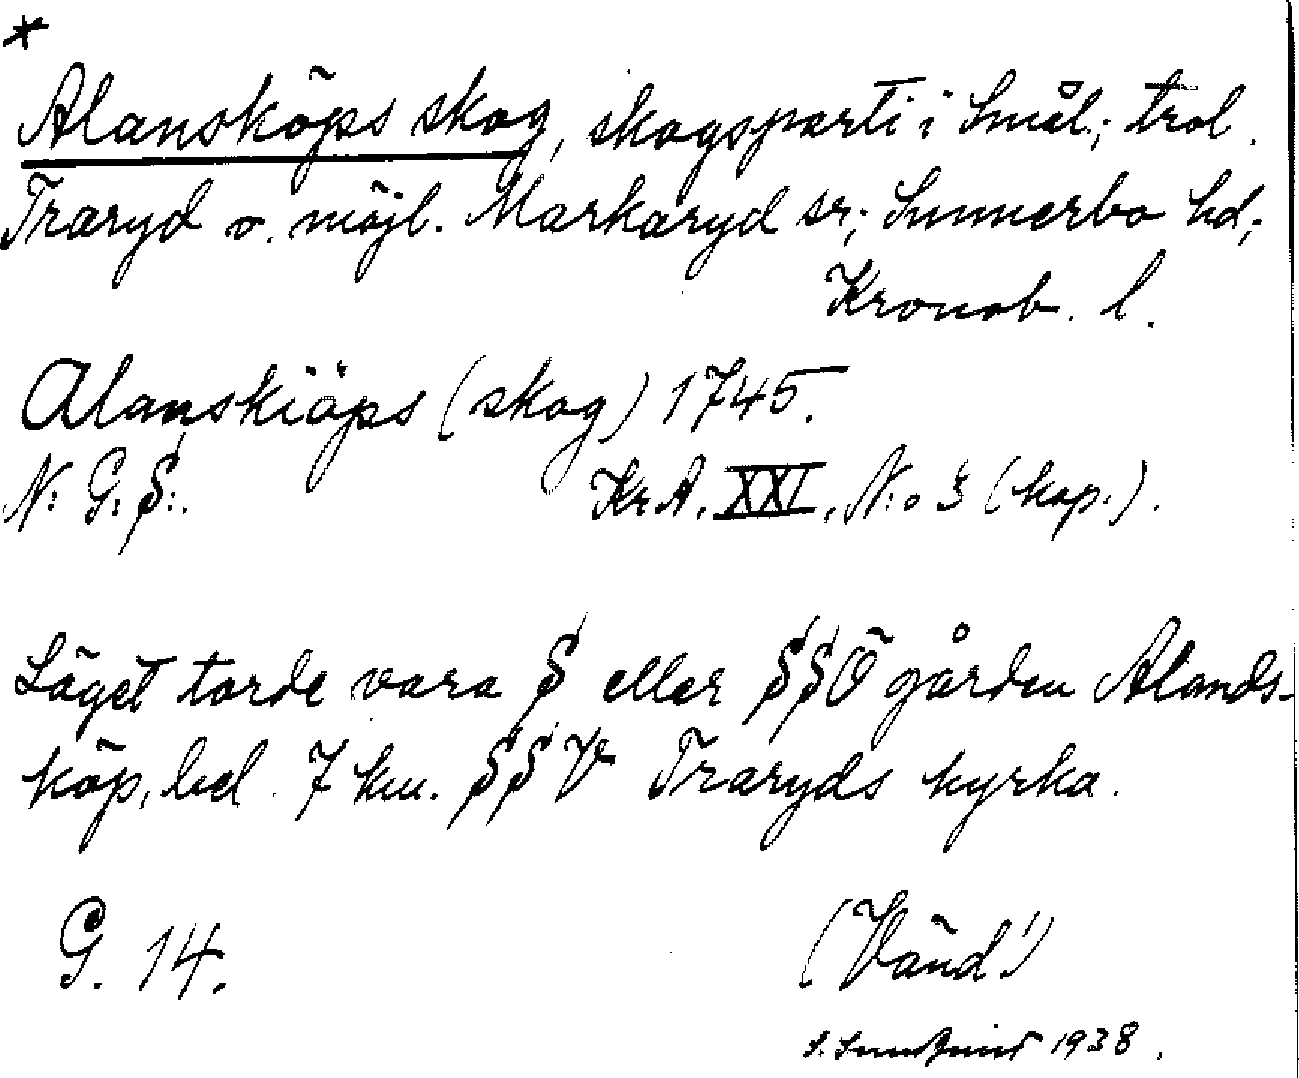 *
Alansköps skog, skogsparti i Smål.; trol.
Traryd o. möjl. Markaryd sr; Sunnerbo hd;
Kronob. l.
Alanskiöps (skog) 1745.
N: G: S:. KrA. XXI, N:o 3 (kop.).
Läget torde vara S eller SSÖ gården Alands-
köp, bel. 7 km. SSV Traryds kyrka.
G. 14. (Vänd!)
S. 1938.